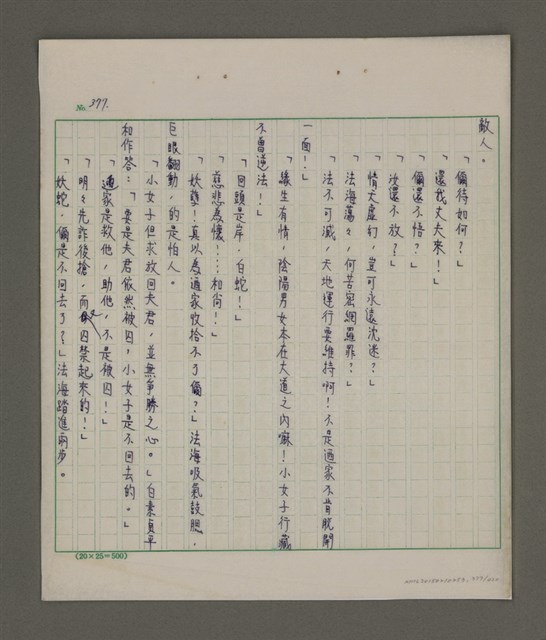 No. 377.
敵人。
「儞待如何?」
「還我丈夫來!」
「儞還不悟?」
「汝還不放?」
「情天虛幻,豈可永遠沈迷?」
「法海蕩々,何苦密網羅罪?」
「法不可滅,天地運行要維持啊!不是過家不肯脫開
一面!」
「緣生有情,陰陽男女本在大道之內嘛!小女子行藏
不曾違法!」
「回頭是岸,白蛇!」
「慈悲為懷!⋯⋯和尚!」
「妖孽!真以為過家收拾不了儞?」法海吸氣鼓腮,
巨眼翻動,的是怕人。
「小女子但求放回夫君,並無爭勝之心。」白素貞平
和作答:「要是夫君依然被囚,小女子是不回去的。」
「過家是救他,助他,不是被囚!」
「明々先詐後搶,而囚禁起來的!」
「妖蛇,儞是不回去了?」法海踏進兩步。
(20×25=500)